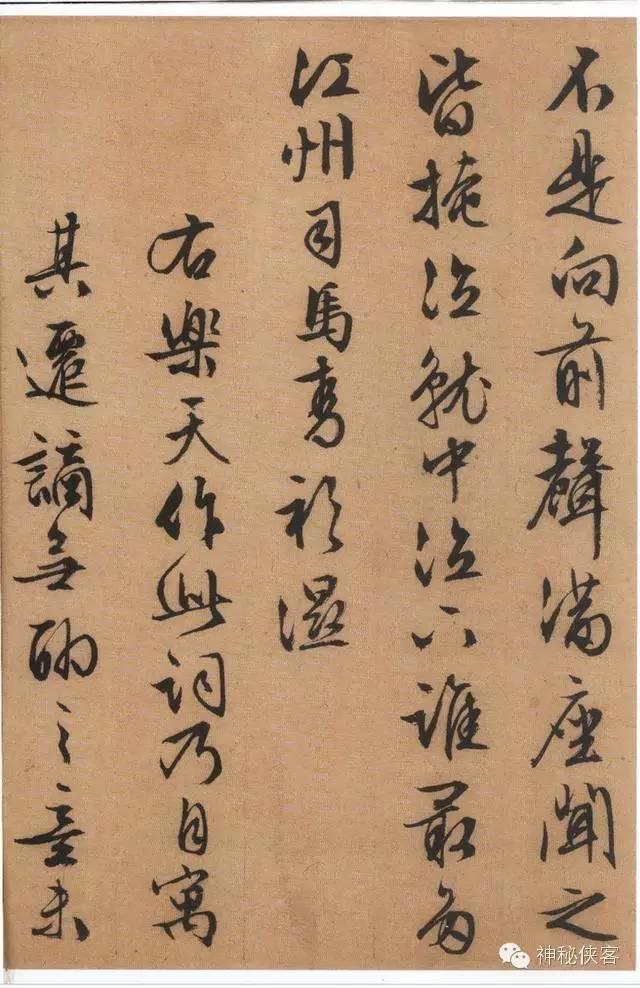 不是向前聲滿座聞之
皆掩泣就中泣下誰最多
江州司馬青衫濕
右樂天作此詞乃自寓
其遷謫無聊之意未
神秘侠客